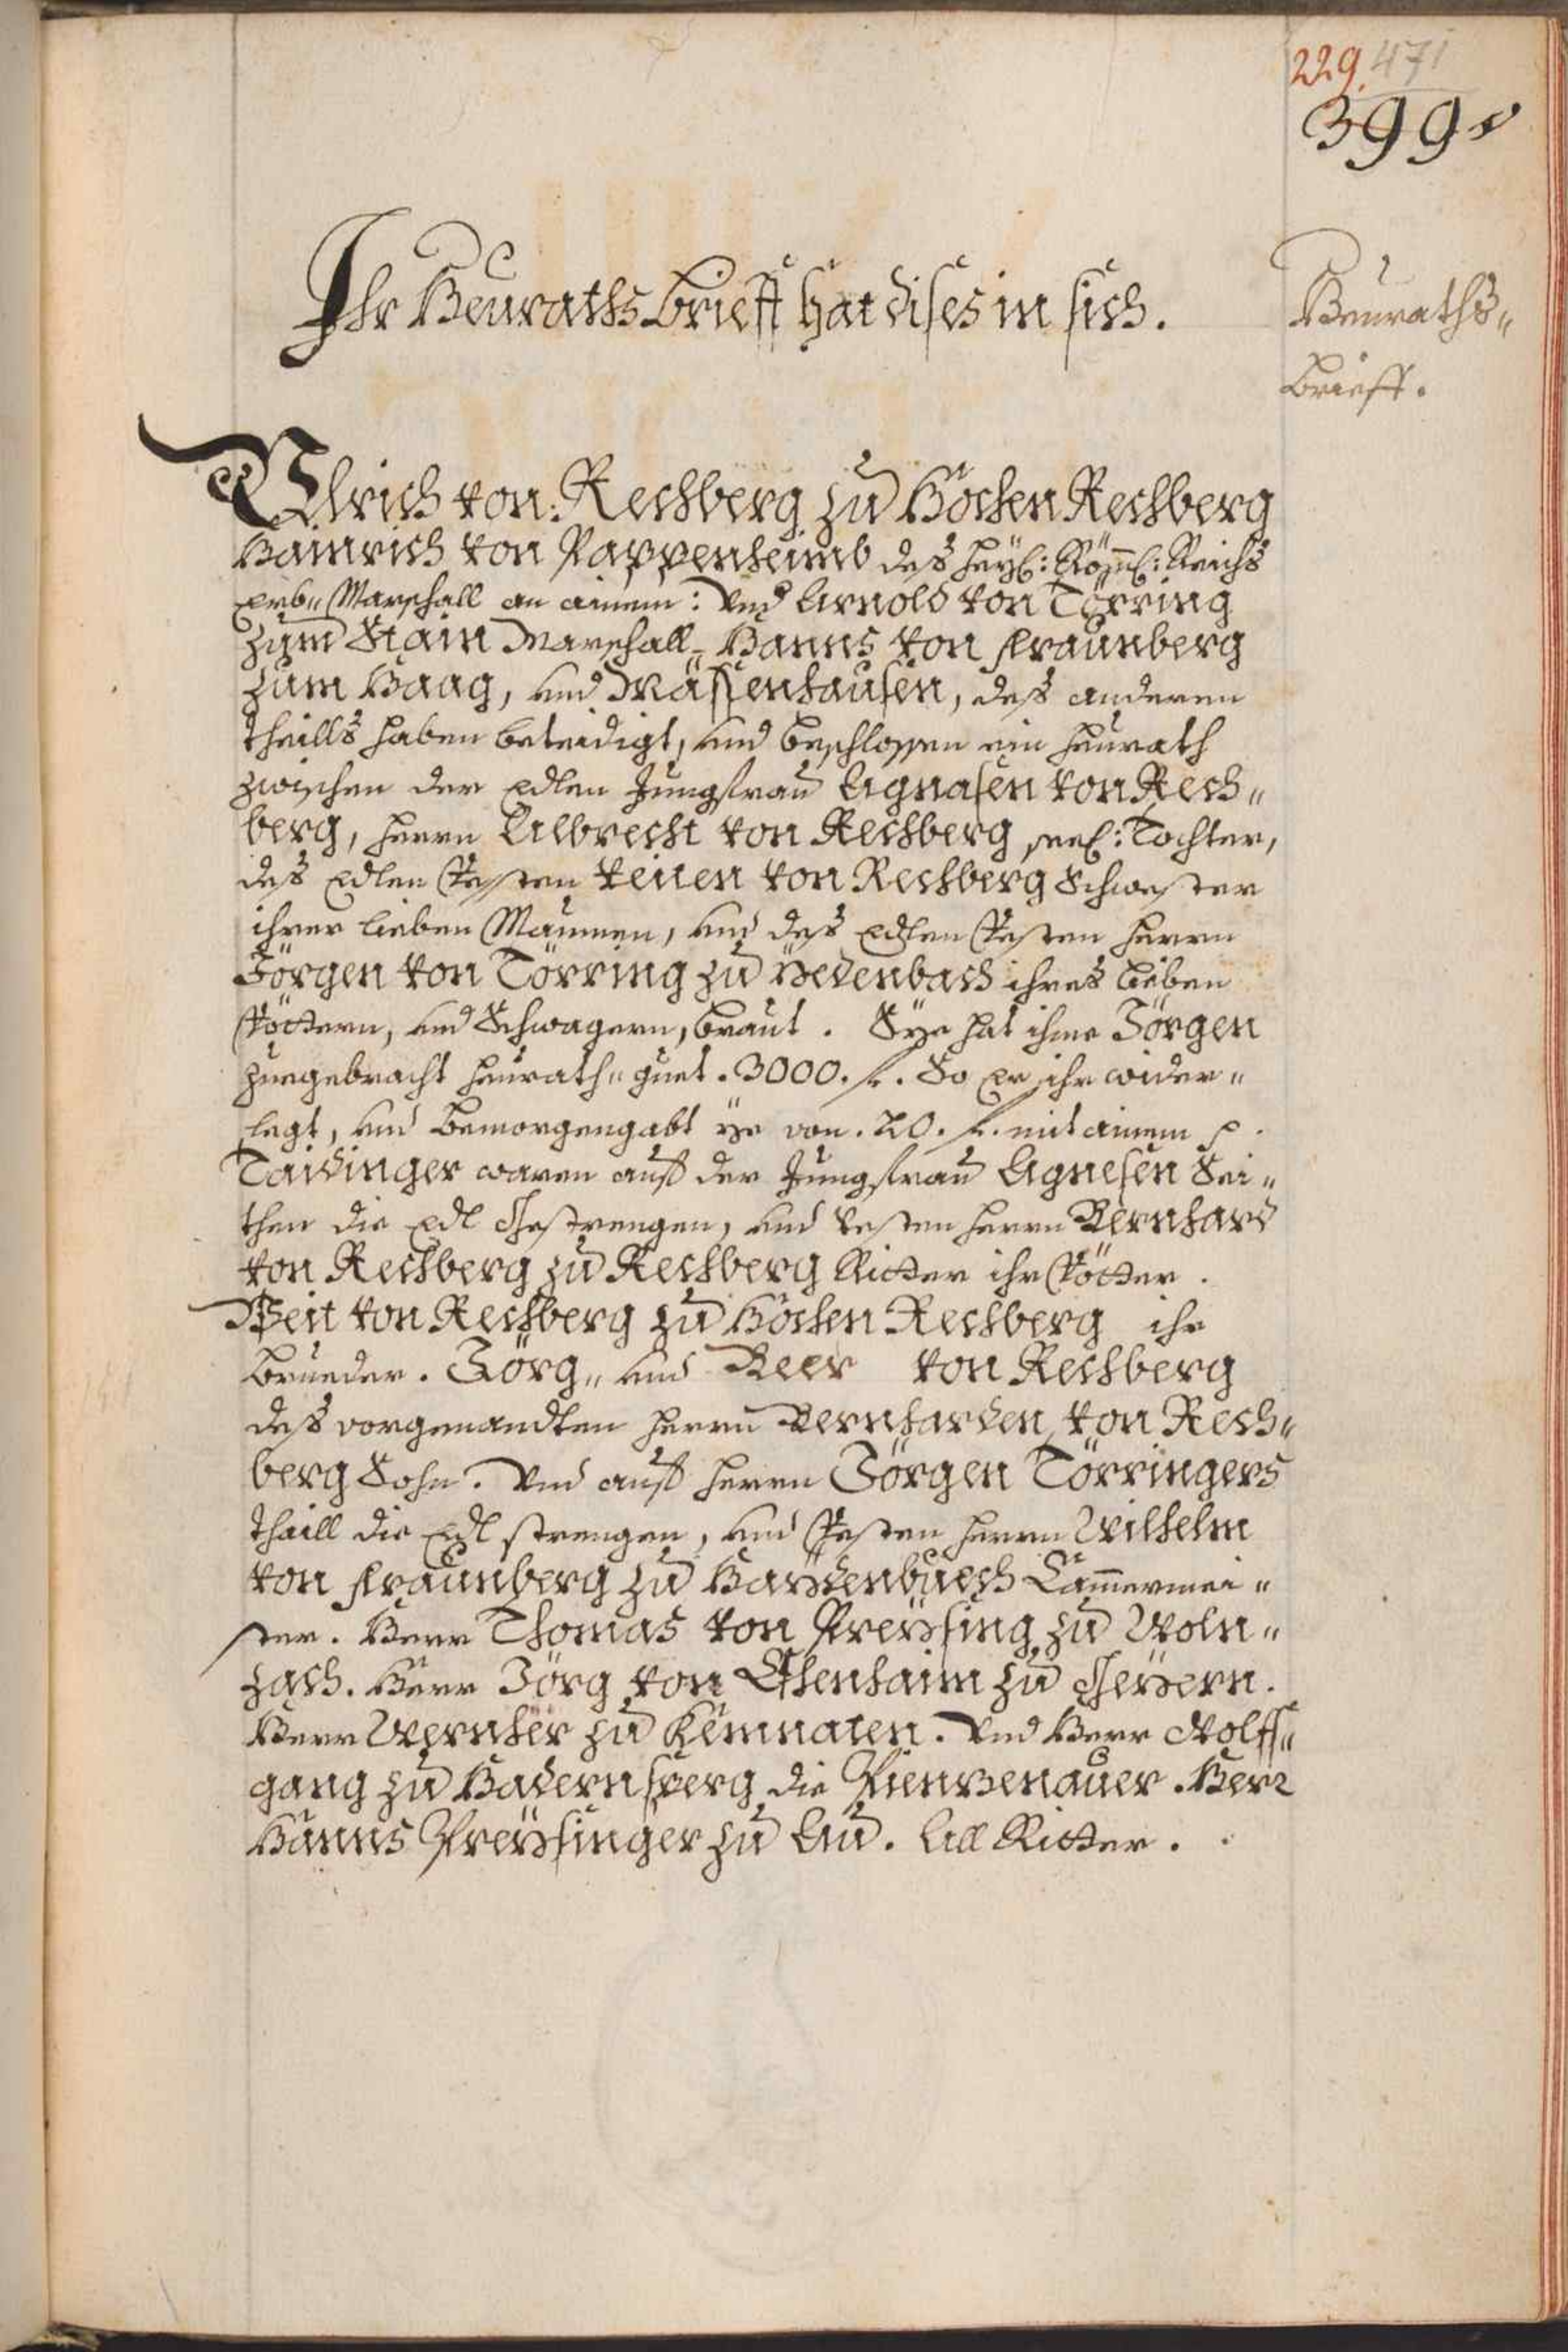 229. 471
399
Ihr Heuraths Brieff hat dises in sich.
Heuraths„
brieff.
Ulrich von Rechberg zu Hochen Rechberg
Hainrich von Pappenheimb des heyl: Röml: Reichs
Erb„ Marschall an ainem: Und Arnold von Törring
zum Stain Marschall„ Hanns von Fraunberg
zum Haag, und Mässenhausen, des anderen
theills haben beteidigt, und beschlossen ein heurath
zwischen der Edlen Jungfrau Agnasen von Rech„
berg, herrn Albrecht von Rechberg seel: Tochter,
des Edlen Vessten Veiten von Rechberg Schwester
ihrer lieben Maumen, und des Edlen Vesten herrn
Jörgen von Törring zu Pedenbach ihres lieben
Vöttern, und Schwagern, braut. Sye hat ihme Jörgen
zuegebracht heurath„ guet. 3000. f. So Er ihr wider„
legt, und bemorgengabt ye von. 20. f. mit ainem
Taidinger waren auf der Jungfrau Agnesen Sei„
then die Edl Gestrengen, und vesten herrn Bernhard
von Rechberg zu Rechberg Ritter ihr Vötter.
Veit von Rechberg zu Hochen Rechberg ihr
brueder. Jörg„ und Beer von Rechberg
des vorgenandten herrn Bernharden von Rech„
berg Sohn. Und auf herrn Jörgen Törringers
thaill die Edl strengen, und Vesten herrn Wilhelm
von Fraunberg zu Haydenbuech Cammermei„
ster. Herr Thomas von Preysing zu Woln„
zach. Herr Jörg von Eisenhaim zu Geyern.
Herr Wernher zu Kemnaten. Und Herr Wolff„
gang zu Hadernsperg die Pienzenauer. Herr
Hanns Preysinger zu Au. All Ritter.